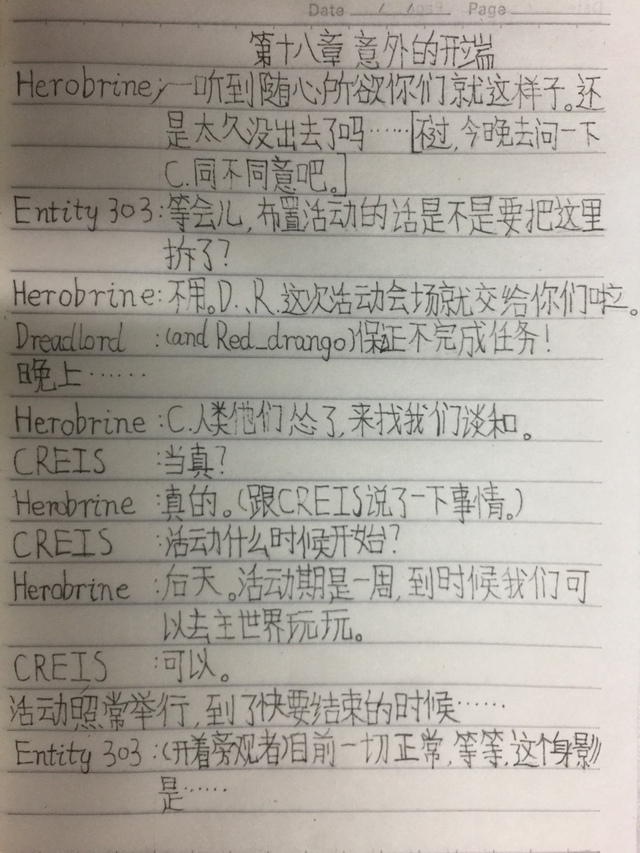 Date / / Page
第十八章 意外的开端
Herobrine:一听到随心所欲你们就这样子。还
是太久没出去了吗……[不过,今晚去问一下
C.同不同意吧。]
Entity 303:等会儿,布置活动的话是不是要把这里
拆了?
Herobrine:不用。D.、R.这次活动会场就交给你们啦。
Dreadlord :(and Red_drango)保证不完成任务!
晚上……
Herobrine:C.人类他们怂了,来找我们谈和。
CREIS :当真?
Herobrine:真的。(跟CREIS说了一下事情。)
CREIS :活动什么时候开始?
Herobrine:后天。活动期是一周,到时候我们可
以去主世界玩玩。
CREIS :可以。
活动照常举行,到了快要结束的时候……
Entity 303:(开着旁观者)目前一切正常,等等,这个身影
是……